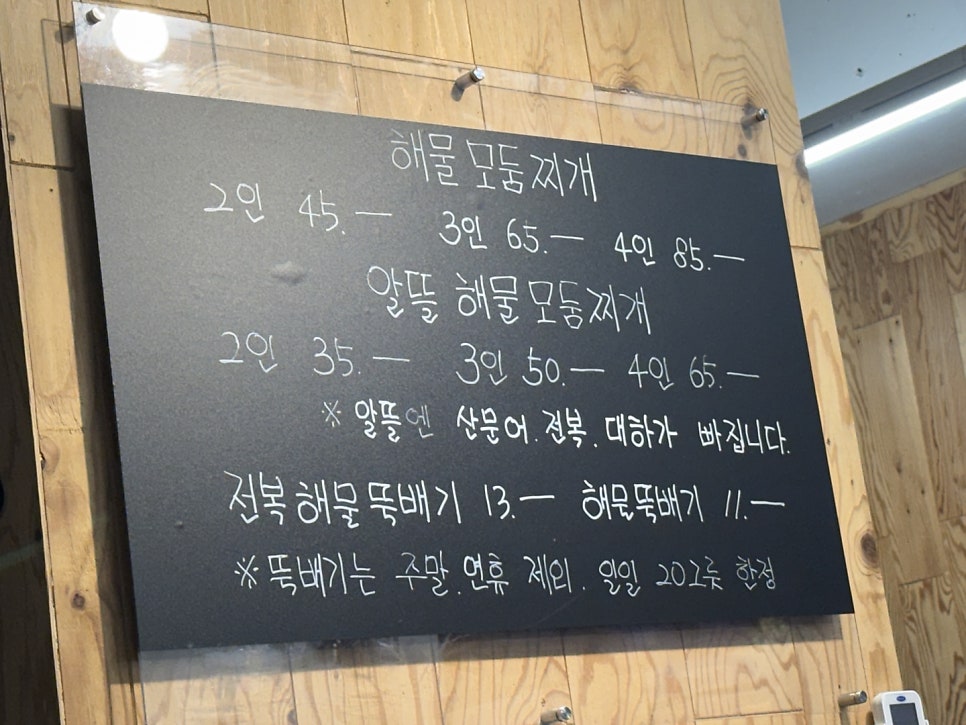 해물모둠찌개
2인 45.— 3인 65.— 4인 85.—
알뜰 해물모둠찌개
2인 35.— 3인 50.— 4인 65.—
※ 알뜰엔 산문어. 전복. 대하가 빠집니다.
전복해물뚝배기 13.— 해물뚝배기 11.—
※뚝배기는 주말.연휴 제외. 일일 20그릇 한정